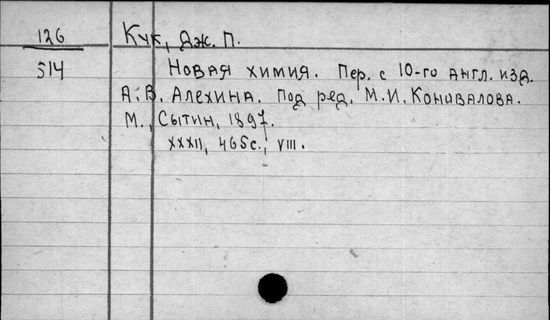 126
514
Кук, Дж. П.
Новая химия. Пер. с 10-го англ. изд.
А. В. Алехина. Под ред. М. И. Коновалова.
М., Сытин, 1897.
XXXII, 465 с., VIII.